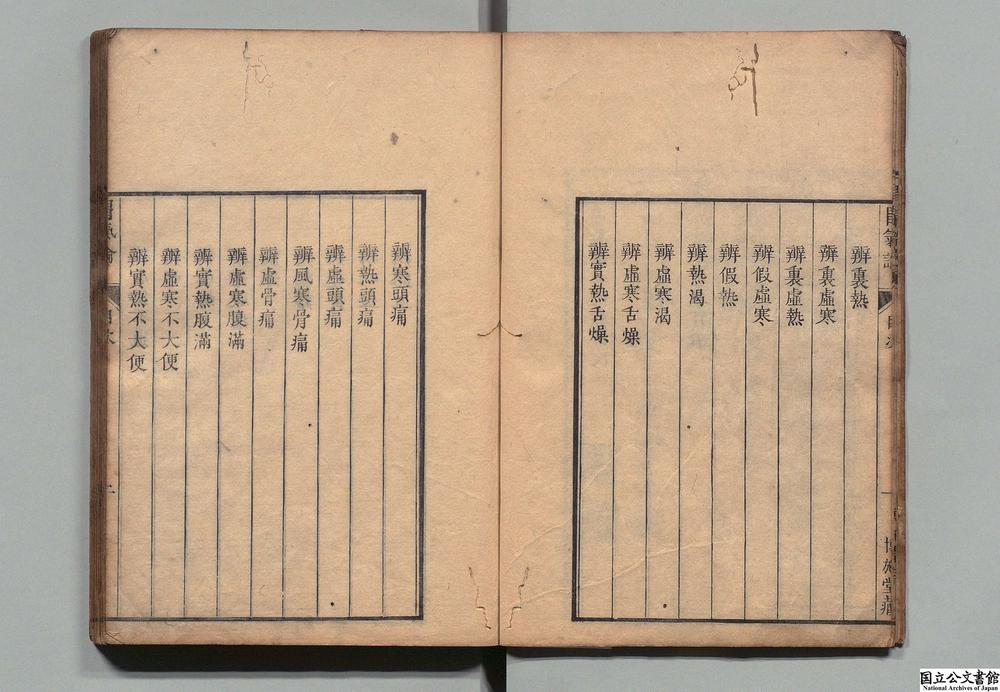 辨裏熱
辨裏虛寒
辨裏虛熱
辨假虛寒
辨假熱
辨熱渴
辨虛寒渴
辨虛寒舌燥
辨實熱舌燥
辨寒頭痛
辨熱頭痛
辨虛頭痛
辨風寒骨痛
辨虛骨痛
辨虛寒腹滿
辨實熱腹滿
辨虛寒不大便
辨實熱不大便
国立公文書館
National Archives of Japan